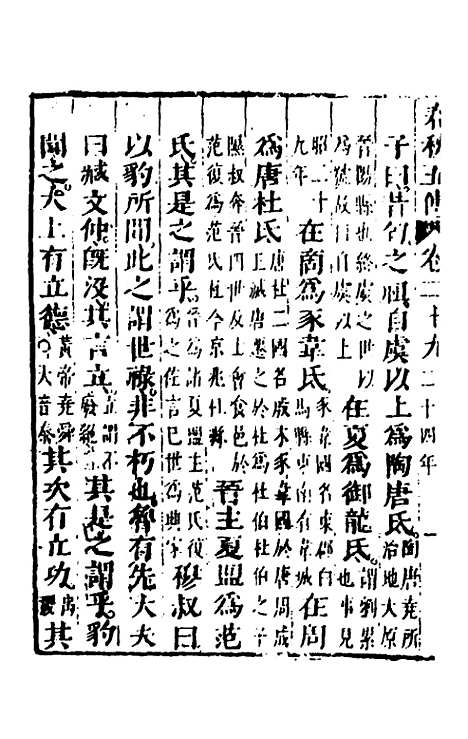 春秋五傳卷二十九 二十四年 一
子曰昔匄之祖自虞以上爲陶唐氏陶唐堯所治地大原
晉陽縣也終虞之世以爲號故曰自虞以上在夏爲御龍氏謂劉累也事見
昭二十九年在商爲豕韋氏豕韋國名東郡白馬縣東南有韋城在周
爲唐杜氏唐杜二國名殷末豕韋國於唐周成王滅唐遷之於杜爲杜伯杜伯之子
隰叔奔晉四世及士會食邑於范復爲范氏杜今京兆杜縣晉主夏盟爲范
氏其是之謂乎晉爲諸夏盟主范氏復爲之佐言已世爲興家穆叔曰
以豹所聞此之謂世祿非不朽也魯有先大夫
曰臧文仲旣沒其言立立謂不廢絶其是之謂乎豹
聞之大上有立德黃帝堯舜大音泰其次有立功禹稷其